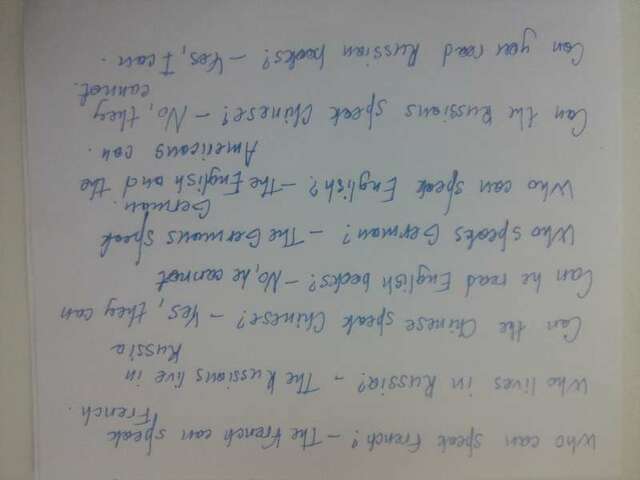 Who can speak French? – The French can speak
French.
Who lives in Russia? – The Russians live in
Russia
Can the Chinese speak Chinese? – Yes, they can
Can he read English books? – No, he cannot
Who speaks German? – The Germans speak
German.
Who can speak English? – The English and the
Americans can.
Can the Russians speak Chinese? – No, they
cannot.
Can you read Russian books? – Yes, I can.